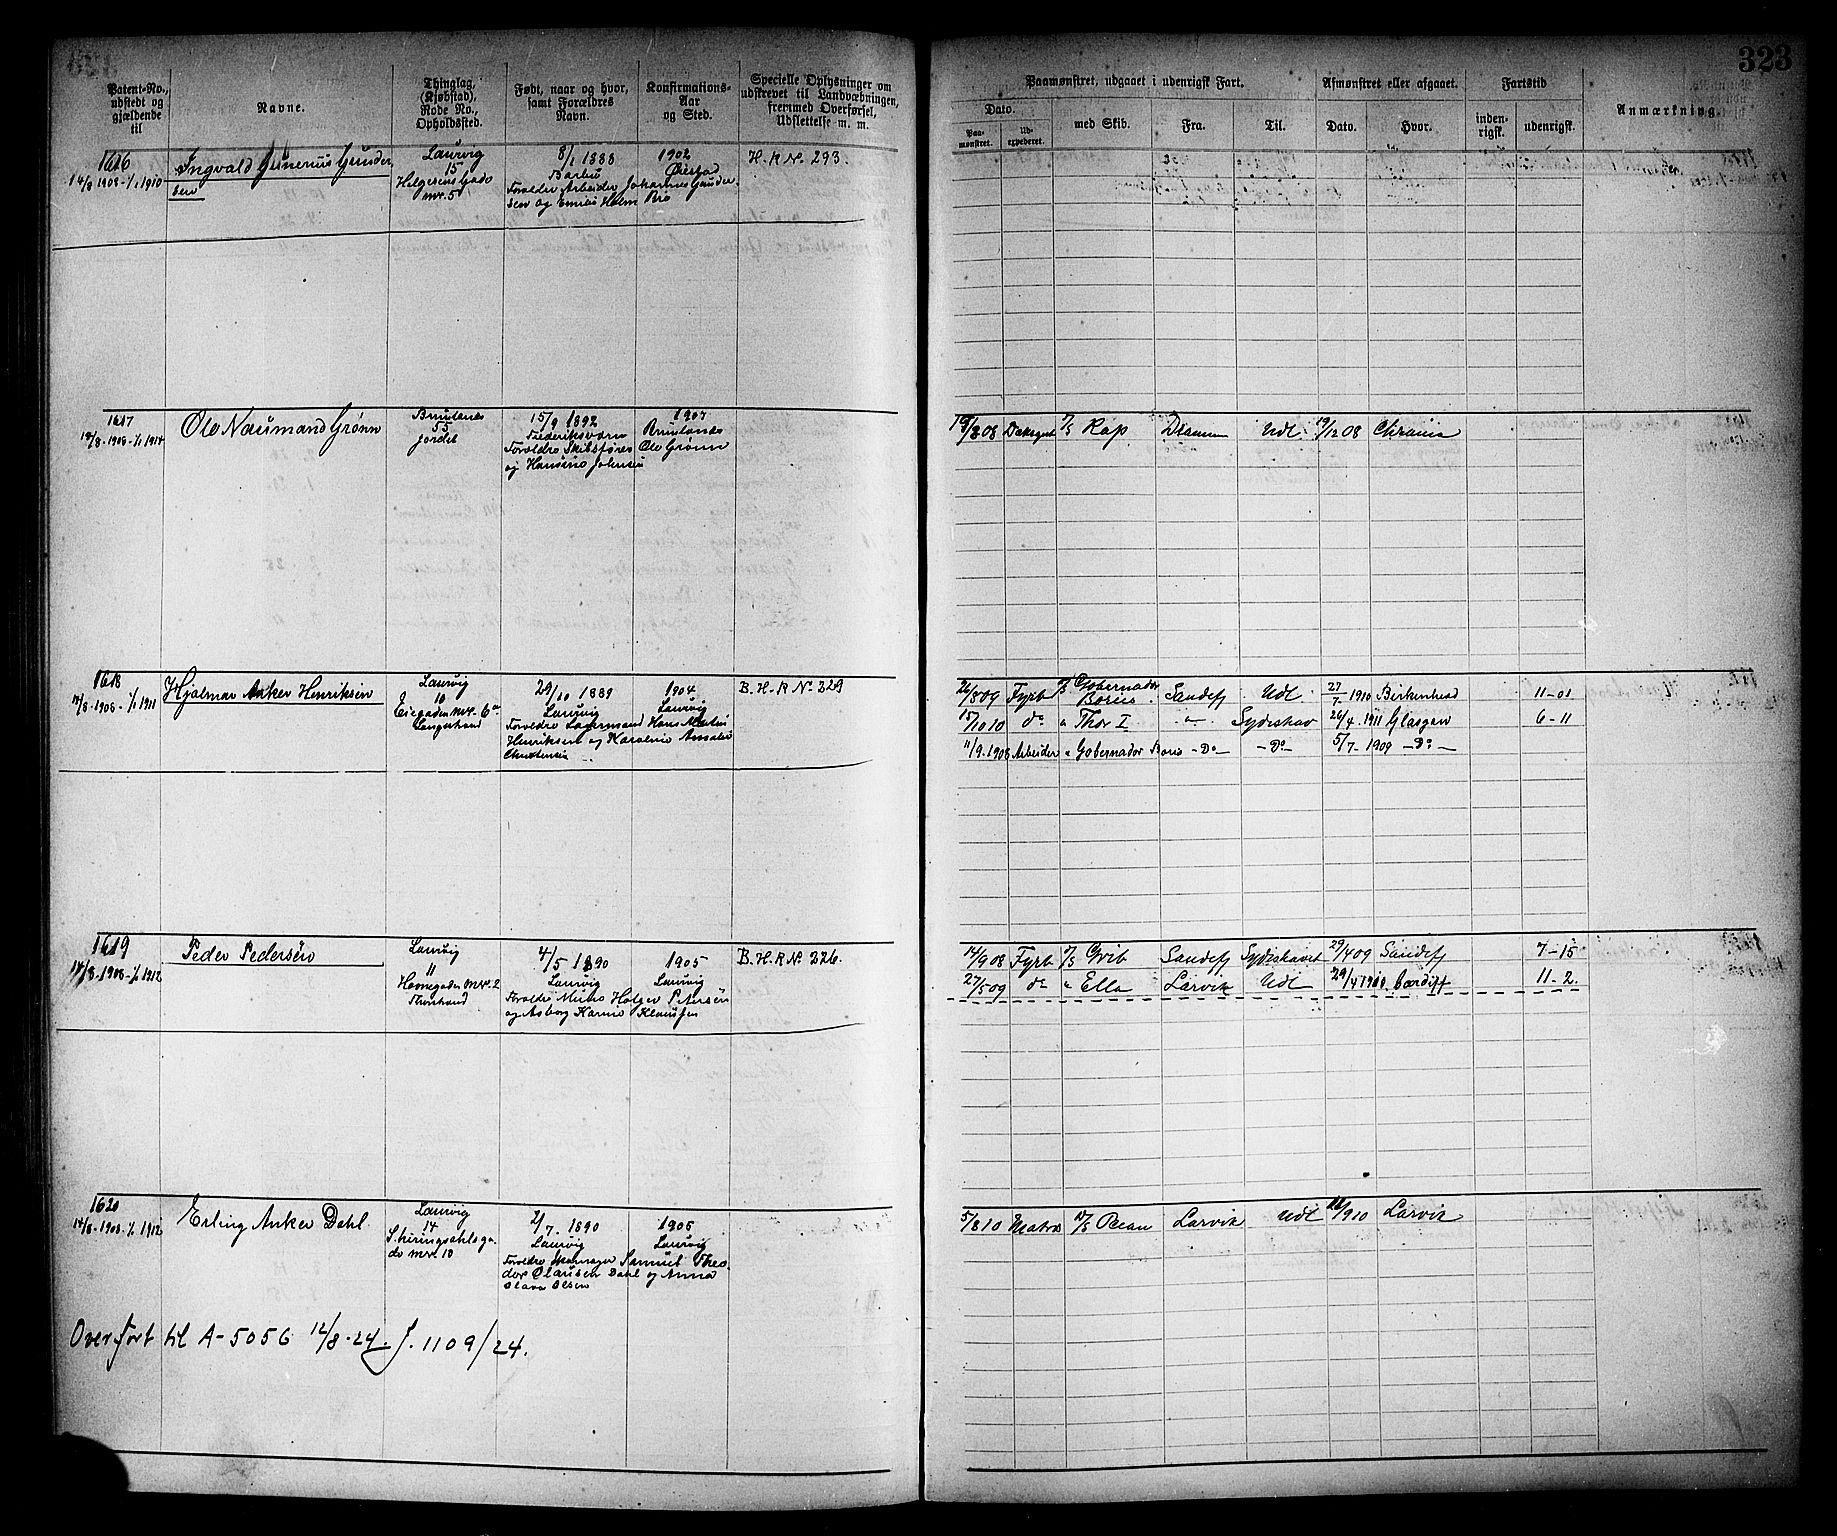 323
Patent-No., udstedt og gjældende til
Navne.
Thinglag, (Kjøbstad), Rode No., Opholdsted.
Født, naar og hvor, samt Forældres Navn.
Konfirmations-Aar og Sted.
Specielle Oplysninger om udskrevet til Landværbningen, fremmed Overførsel, Udslettelse m. m.
Paamønstret, udgaaet i udenrigsk Fart.
Dato.
Paa-mønstret.
Ud-expederet.
med Skib.
Fra.
Til.
Afmønstret eller afgaaet.
Dato.
Hvor.
Fartstid
inden-rigsk.
udenrigsk.
Anmærkning.
1616
14/8 1908 - 1/1 1910
Ingvald Gunerius Gunder
sen
Laurvig
15
Helgesens Gade
nr. 5
8/1 1888
Barbu
1902
Øiestad
Forældre Arbeider Johannes Gunder
sen og Emilie Holm Bro
H.R No. 293.
1617
14/8 - 1908 - 1/1 1914
Ole Naumand Grønn
Brunlanes
55
Jordet
15/9 1892
Frederiksværn
1907
Brunlanes
Forældre Skibsfører Ole Grønn
og Hansine Johnsen
19/8 08 Dæksgut
S/S Kap.
Drammen
Udl
19/12 08
Chrania
1618
14/8 - 1908 - 1/1 1911
Hjalmar Anker Henriksen
Laurvig
10
Eiegaden nr. 6a
Langestrand
29/10 1889
Laurvig
1904
Laurvig
Forældre Lagermand Hans Martin
Henriksen og Karoline Amalie
Christensen
B.H.R No 229
21/8 09 Fyrb. S/S Gobernador Bories. Sandefj Udl 27/7 1910 Birkenhead 11-01
15/10 10 do " Thor I " Sydishav 26/4 1911 Glasgow 6-11
11/9 1908 Arbeider " Gobernador Boris - Do - - Do - 5/7 - 1909 - Do -
1619
14/8 - 1908 - 1/1 1912
Peder Pedersen
Laurvig
11
Havnegaden nr. 2
Thorstrand
4/5 1890
Laurvig
1905
Laurvig
Forældre Murer Holger Petersen
og Asborg Karine Klausen
B.H.R No. 226.
14/9 08 Fyrb S/S Grib Sandefj Sydishavet 29/4 09 Sandefj 7-15
27/5 09 do " Ella Larvik Udl 29/4 1910. Cardiff 11-2.
1620
14/8 - 1908 - 1/1 1912
Erling Anker Dahl.
Laurvig
14
Skiringsahlsga
de nr. 10
2/7. 1890
Laurvig
1905
Laurvig
Forældre Skomager Samuel Theo
dor Olausen Dahl og Anna
Olava Olsen
5/8 10 Matros S/S Bean Larvik Udl 12/9 10 Larvik
Overført til A-5056 12/8-24. J. 1109/24.